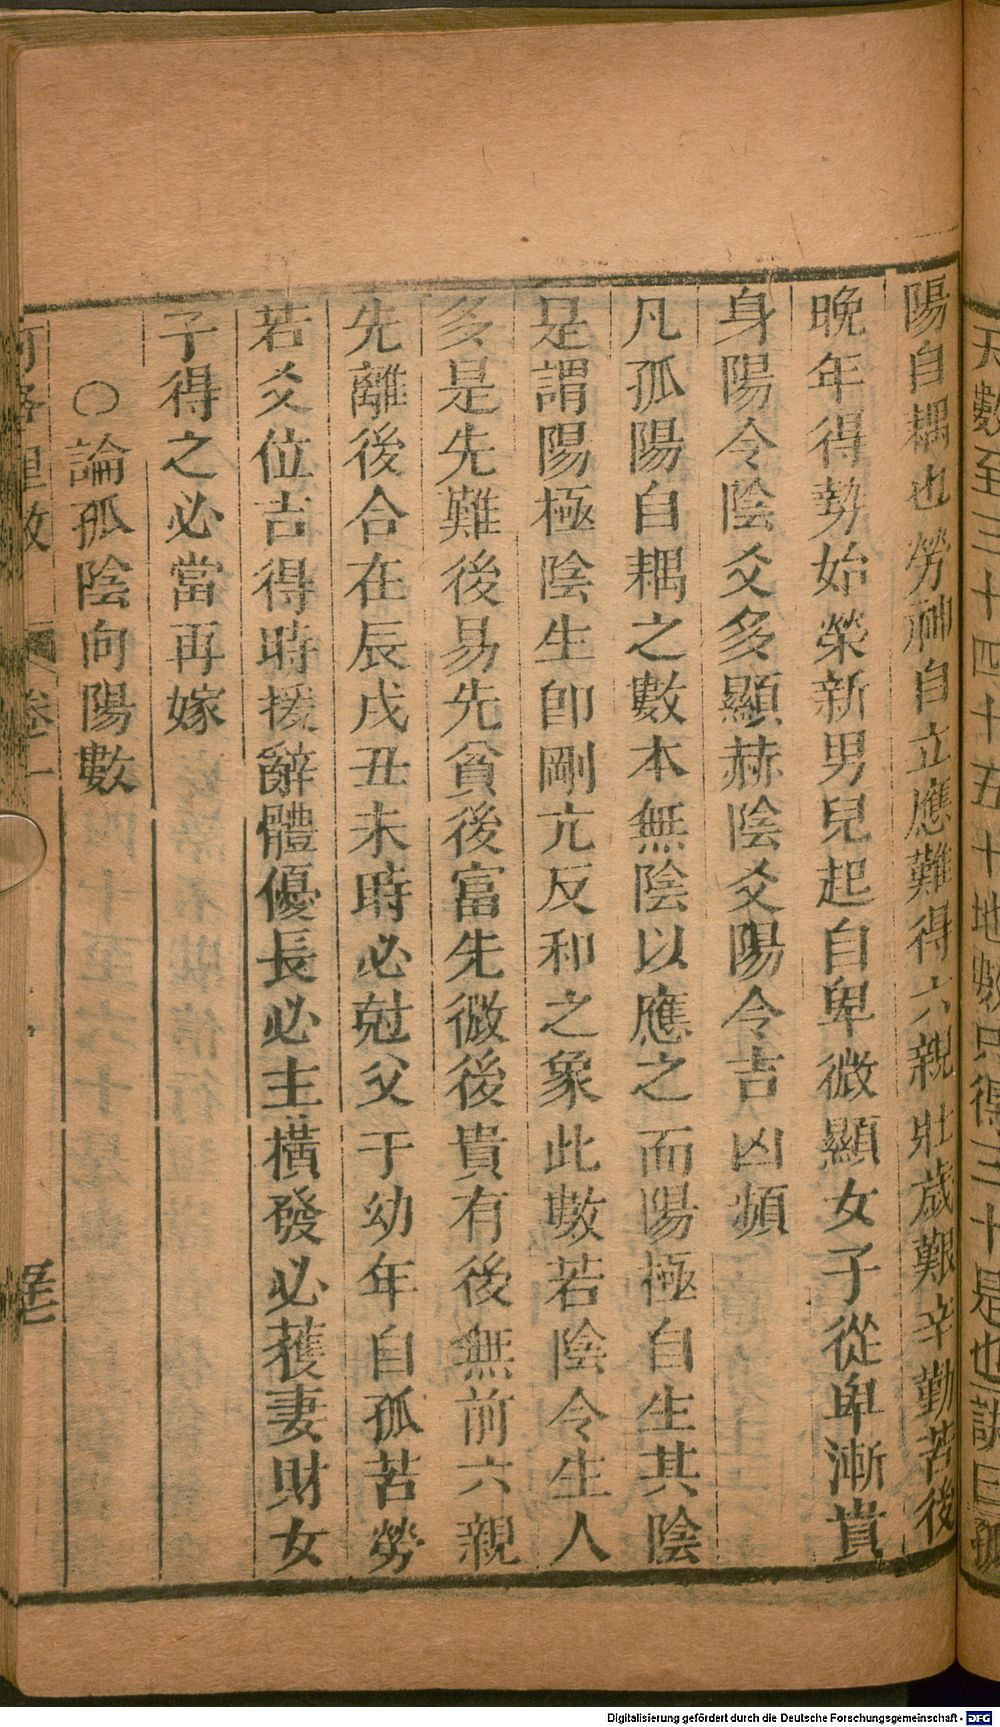 天數至三十四十五十地數只得三十是也訣曰孤
陽自耦也勞神自立應難得六親壯歲艱辛勤苦後
晚年得勢始榮新男兒起自卑微顯女子從卑漸貴
身陽令陰爻多顯赫陰爻陽令吉凶頻
凡孤陽自耦之數本無陰以應之而陽極自生其陰
是謂陽極陰生卽剛亢反和之象此數若陰令生人
多是先難後易先貧後富先微後貴有後無前六親
先離後合在辰戌丑未時必尅父于幼年自孤苦勞
若爻位吉得時援辭體優長必主橫發必獲妻財女
子得之必當再嫁
○論孤陰向陽數
卷一
Digitalisierung gefördert durch die Deutsche Forschungsgemeinschaft - DFG